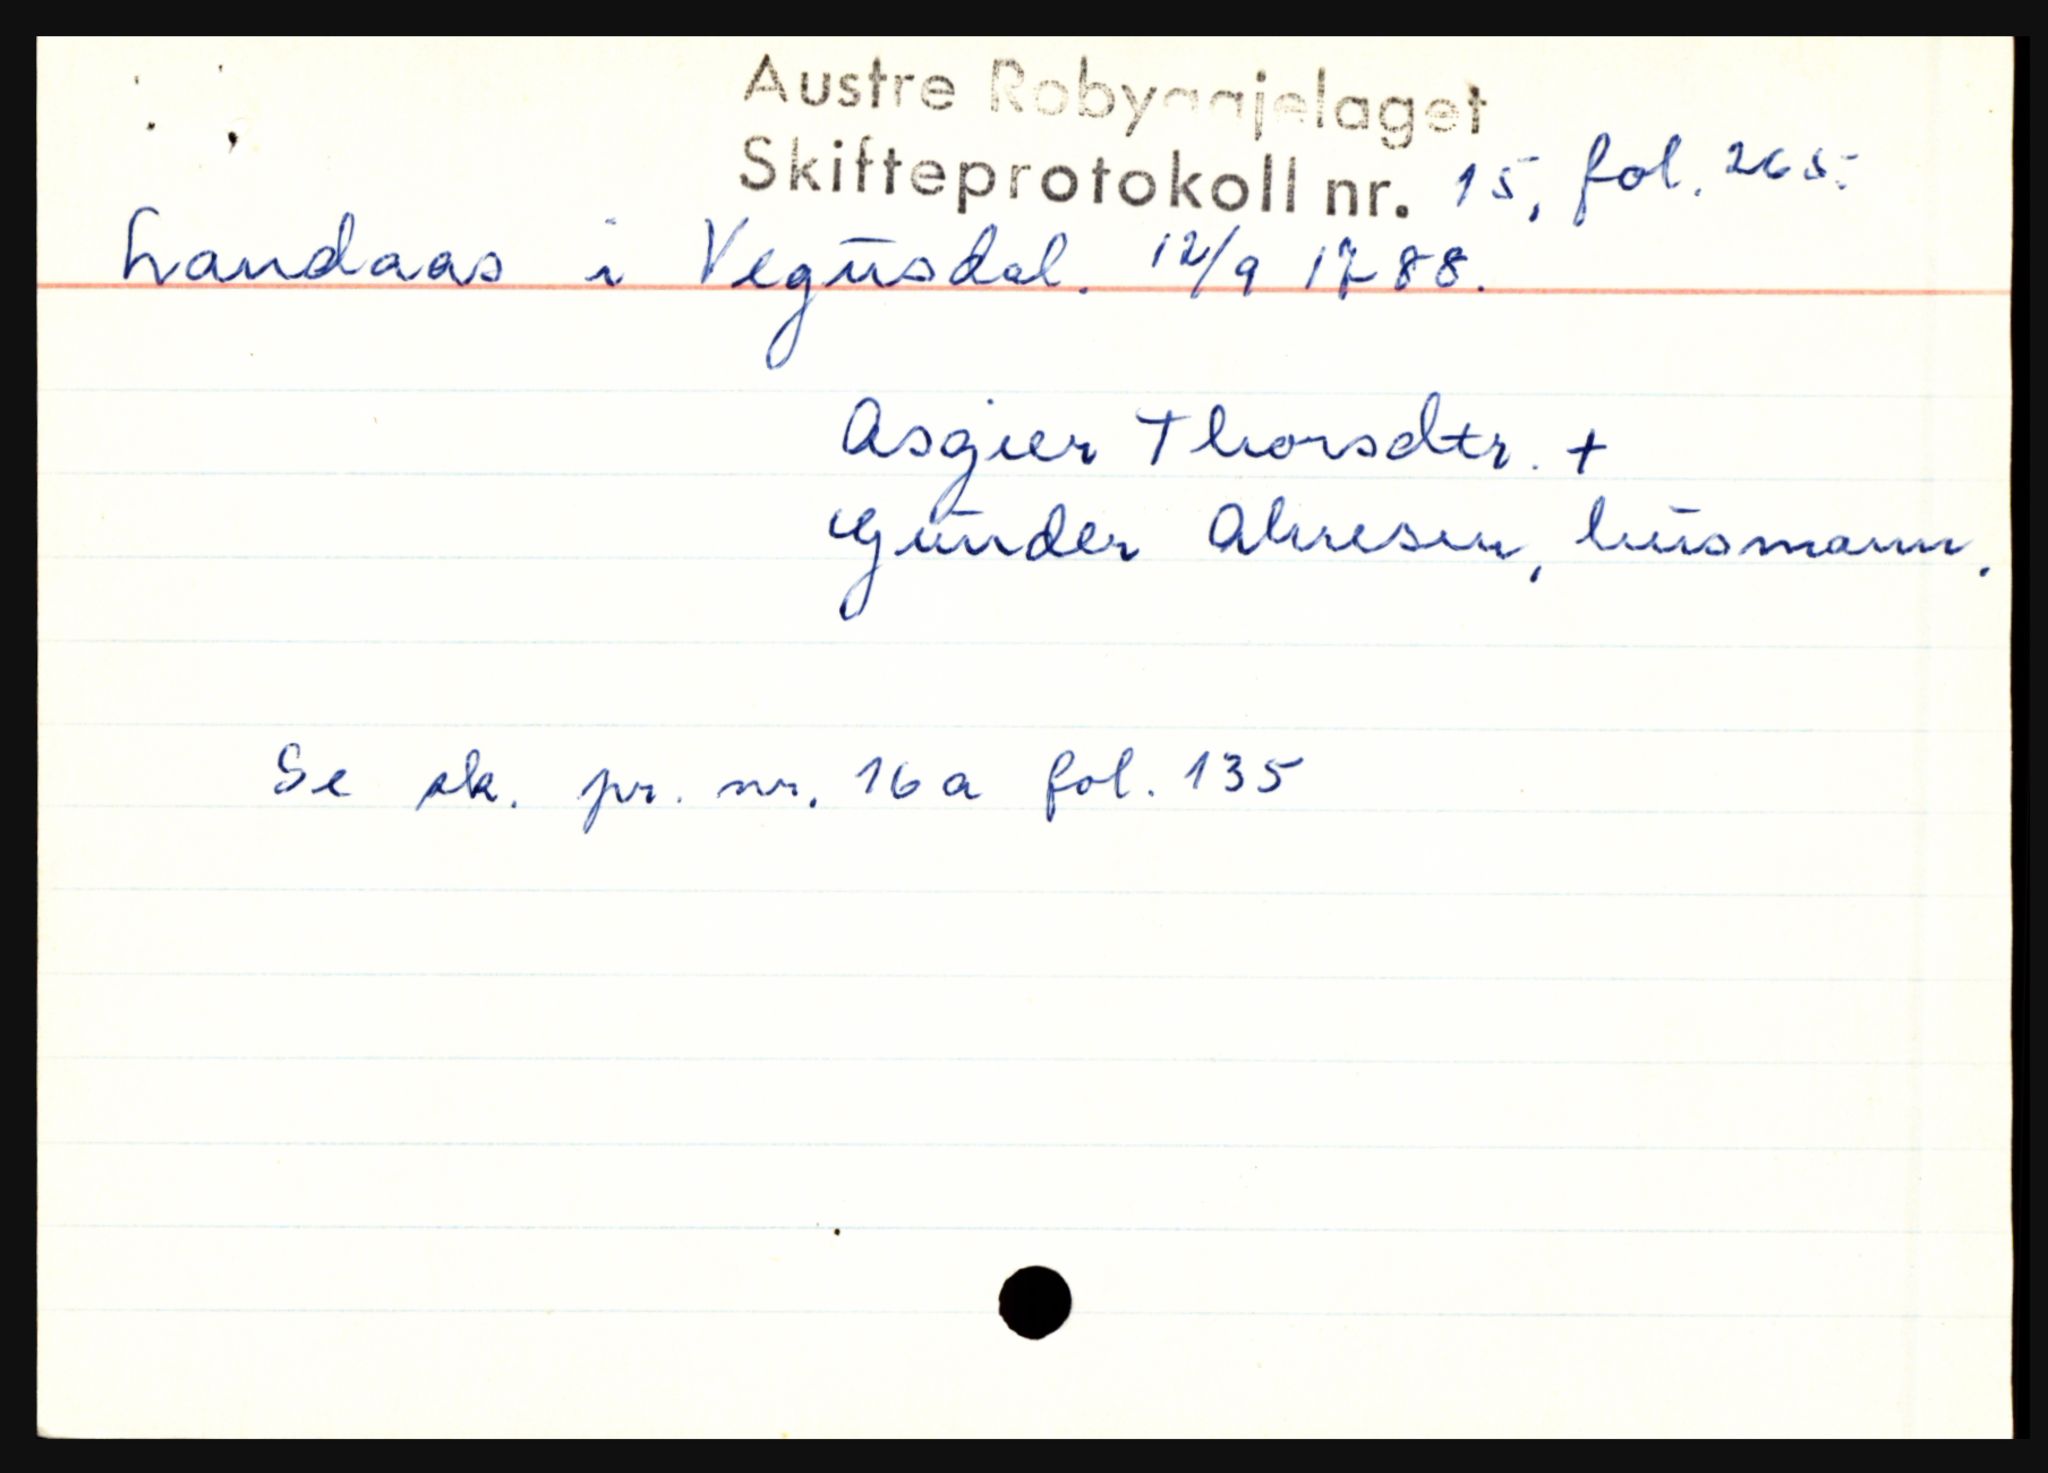 Austre Robyggjelaget
Skifteprotokoll nr. 15, fol. 265.
Landaas i Vegusdal. 12/9 1788.
Asgier Thorsdtr. +
Gunder Alvesen, husmann.
Se sk. pr. nr. 16a fol. 135